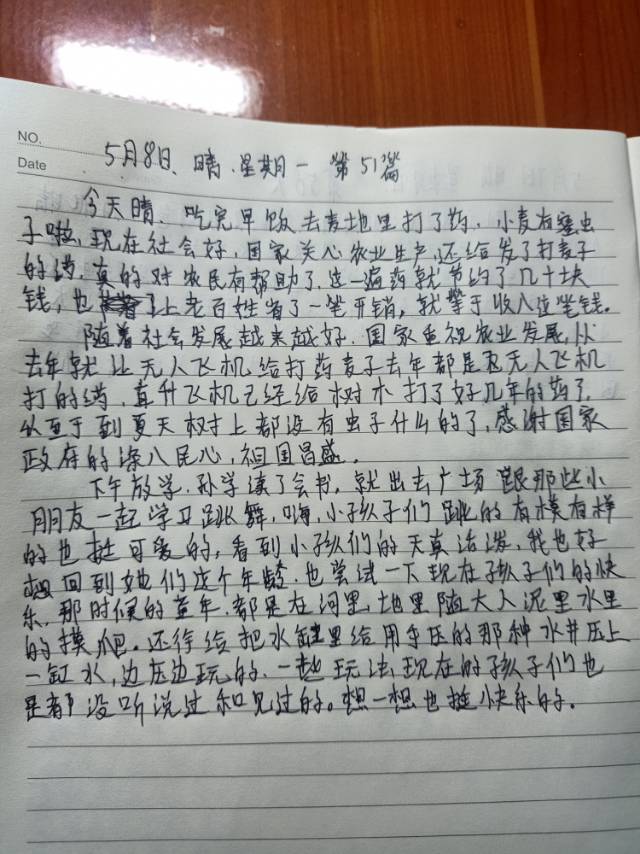 NO.
Date
5月8日、晴.星期一 第51篇
今天晴、吃完早饭去麦地里打了药,小麦有蜜虫
子啦,现在社会好,国家关心农业生产,还给发了打麦子
的药,真的对农民有帮助了,这一遍药就节约了几十块
钱,也 了上老百姓省了一笔开销,就等于收入这笔钱。
随着社会发展越来越好,国家重视农业发展,从
去年就让无人飞机给打药麦子去年都是 无人飞机
打的药,直升飞机已经给树木打了好几年的药了,
从至于到夏天树上都没有虫子什么的了,感谢国家
政府的深入民心,祖国昌盛。
下午放学,孙学读了会书,就出去广场跟那些小
朋友一起学习跳舞,嗨,小孩子们跳的有模有样
的也挺可爱的,看到小孩们的天真活泼,我也好
想回到她们这个年龄,也尝试一下现在孩子们的快
乐,那时候的童年,都是在河里,地里随大人泥里水里
的摸爬。还得给把水缸里给用手压的那种水井压上
一缸水,边压边玩的,一些玩法现在的孩子们也
是都没听说过和见过的。想一想也挺快乐的。